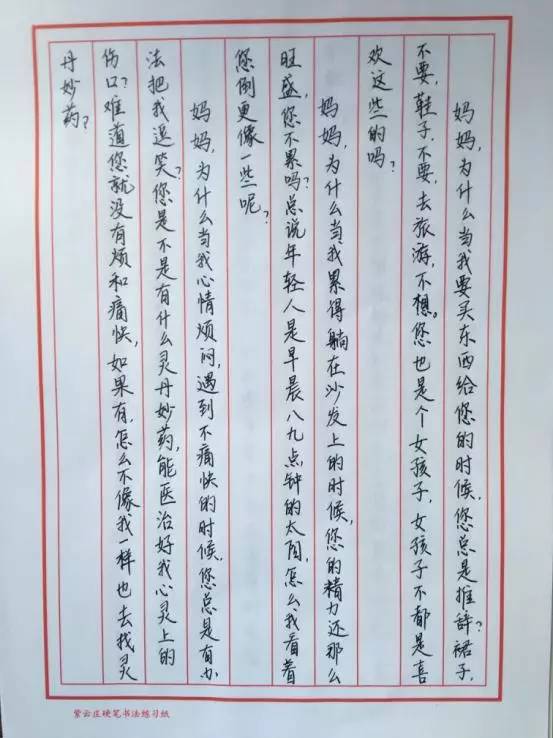 妈妈,为什么当我要买东西给您的时候,您总是推辞?裙子,
不要,鞋子,不要,去旅游,不想。您也是个女孩子,女孩子不都是喜
欢这些的吗?
妈妈,为什么当我累得躺在沙发上的时候,您的精力还那么
旺盛,您不累吗?总说年轻人是早晨八九点钟的太阳,怎么我看着
您倒更像一些呢?
妈妈,为什么当我心情烦闷,遇到不痛快的时候,您总是有办
法把我逗笑?您是不是有什么灵丹妙药,能医治好我心灵上的
伤口?难道您就没有烦和痛快,如果有,怎么不像我一样也去找灵
丹妙药?
紫云庄硬笔书法练习纸